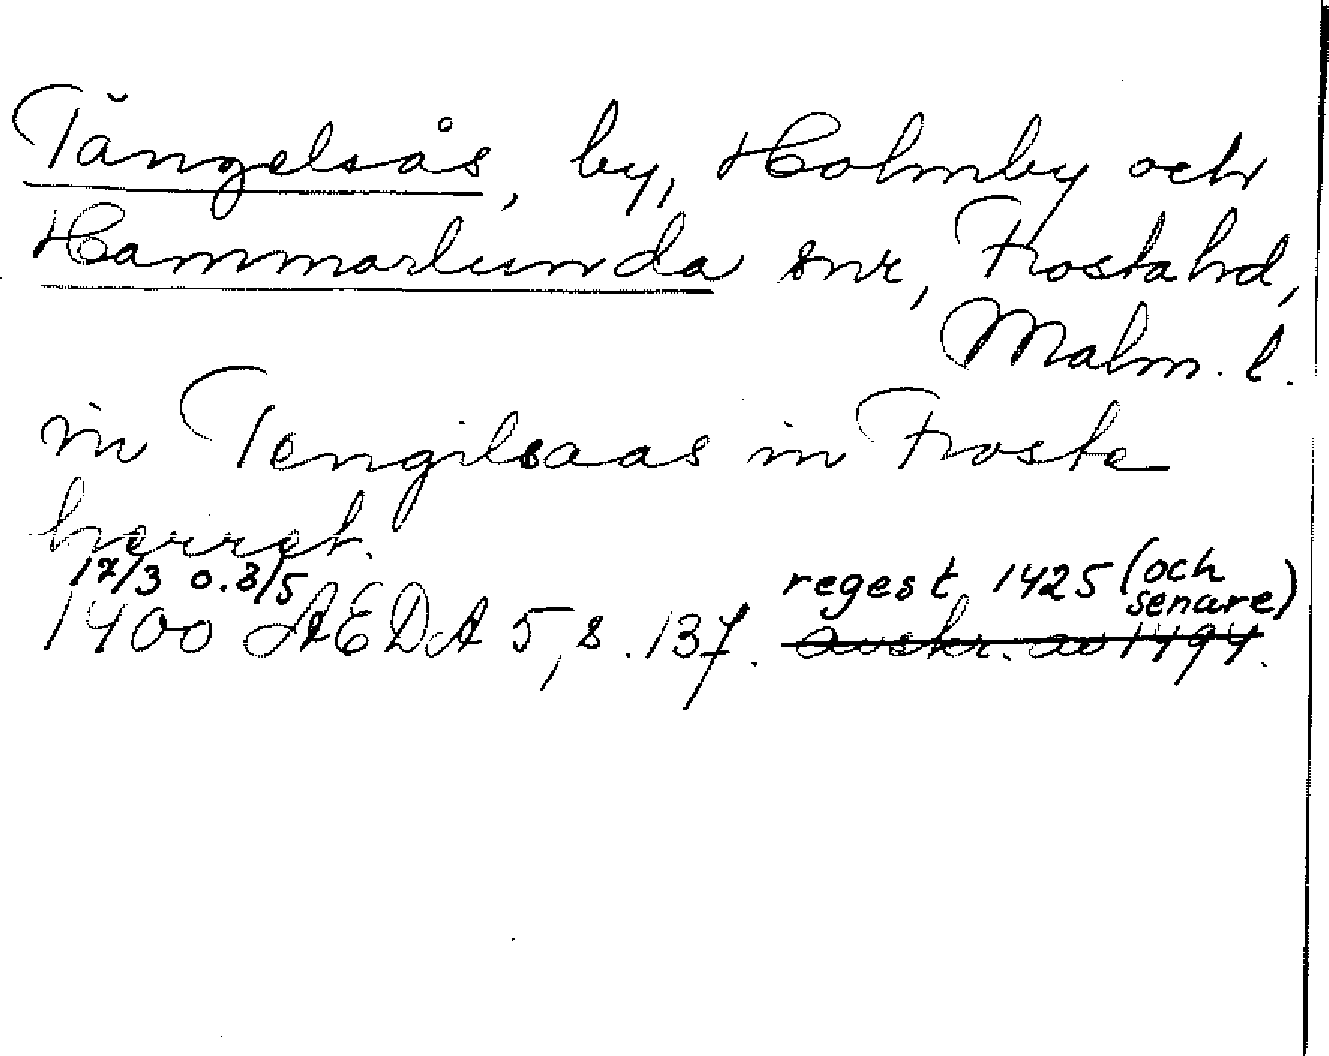 Tängelsås, by, Holmby och
Hammarlunda snr, Frosta hd,
Malm. l.
in Tengilsaas in Froste
herret.
17/3 o. 3/5 regest 1425 (och senare)
1400 AEDA 5, s. 137. avskr. av 1494.